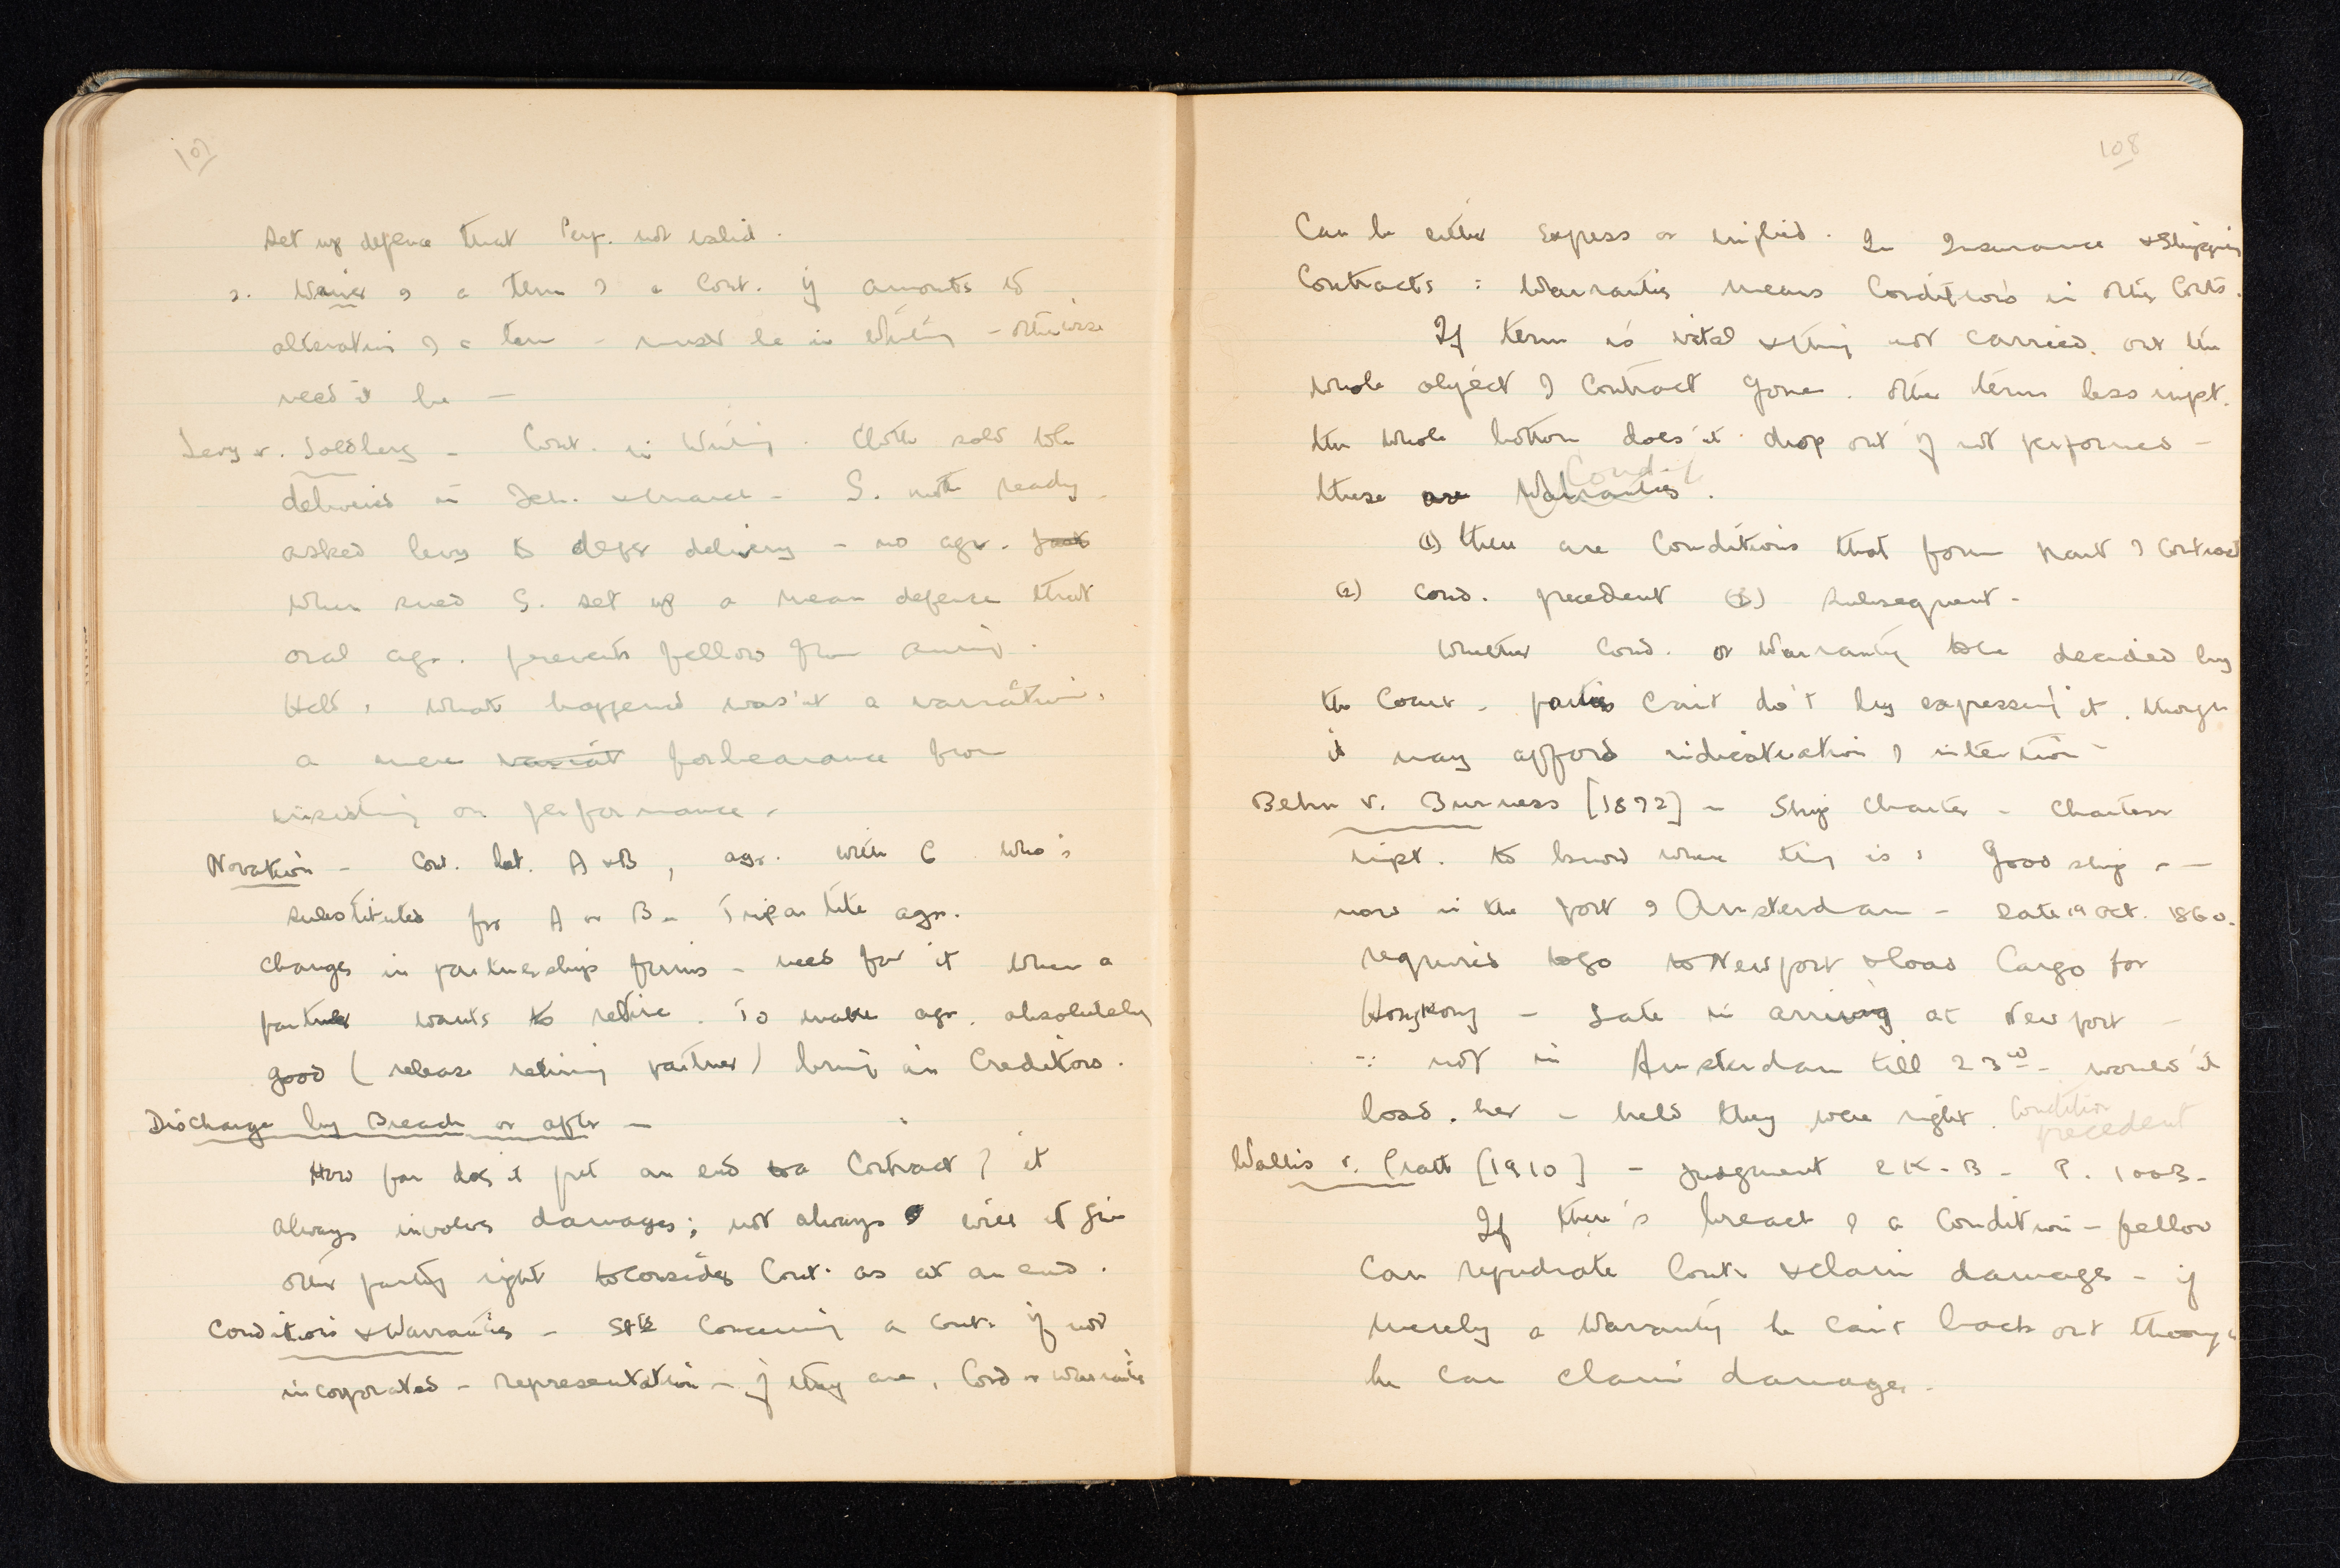 107
set up defence that Perf. not valid.
2. Waiver of a term of a Cont. if amounts to
alteration of a term - must be in writing - otherwise
need'nt be -
Levy v. Goldberg - Cont. in Writing. Cloth sold to be
delivered in Feb. & March - G. not ready
asked Levy to defer delivery - no agr.
When sued G. set up a mean defense that
oral agr. prevents fellow from suing.
Held, what happened was'nt a variation,
a mere variat forbearance from
insisting on performance.
Novation - Cont. bet. A & B, agr. with C who's
substituted for A or B - Tripartite agr.
changes in partnership firms - need for it when a
partner wants to retire. To make agr. absolutely
good (release retiring partner) bring in Creditors.
Discharge by Breach or after -
How far does it put an end to a Contract? it
always involves damages; not always will it give
other party right to consider Cont. as at an end.
Conditions & Warranties - Stts Concerning a Cont. if not
incorporated - representation - if they are, Cond or Warranties
108
Can be either Express or implied. In Insurance & Shipping
Contracts: Warranties means Conditions in other Conts.
If term is vital & thing not carried out the
whole object of Contract gone. Other terms less impt.
the whole bottom does'nt drop out if not performed -
these are Warranties.
(1) there are Conditions that form part of Contract
(2) Cond. precedent (3) Subsequent -
Whether Cond. or Warranty to be decided by
the Court - parties can't do't by expressing it, though
it may afford indicatuation of intention -
Behn v. Burness [1872] - Ship Charter - Charterer
impt. to know where thing is: Good ship - -
now in the port of Amsterdam - Date 19 Oct. 1860.
required to go to Newport & load Cargo for
HongKong - Late in arriving at Newport -
∵ not in Amsterdam till 23rd - would'nt
load her - held they were right. Condition
precedent
Wallis v. Pratt [1910] - Judgment 2 K.B. P. 1003.
If there's breach of a Condition - fellow
can repudiate Cont. & claim damages - if
merely a Warranty he can't back out though
he can claim damages.